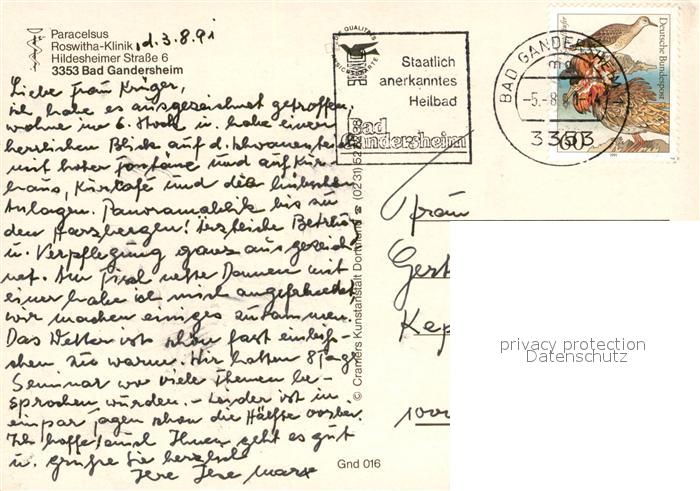 Paracelsus
Roswitha-Klinik
Hildesheimer Straße 6
3353 Bad Gandersheim
d. 3.8.91
Liebe Frau Krüger,
ich habe es ausgezeichnet getroffen,
wohne im 6. Stock u. habe einen
herrlichen Blick auf d. Schwanenteich
mit hoher Fontäne und auf Kur-
haus, Kurcafé und die hübschen
Anlagen. Panoramablick bis zu
den Harzbergen! Ärztliche Betreuung
u. Verpflegung ganz ausgezeich
net. Am Tisch nette Damen mit
einer habe ich mich angefreundet,
wir machen einiges zusammen.
Das Wetter ist schön fast ein biß-
chen zu warm. Wir hatten 8 Tage
Seminar wo viele Themen be-
sprochen wurden. - Leider ist in
ein paar Tagen schon die Hälfte vorbei.
Ich hoffe, auch Ihnen geht es gut
u. grüße Sie herzlich
Ihre
Staatlich
anerkanntes
Heilbad
Bad
Gandersheim
BAD GANDERSHEIM 1
-5.-8
3353
Deutsche Bundespost
60
© Cramers Kunstanstalt Dortmund ☎ (0231)
Gnd 016
Frau
Gert
Kep
1000
privacy protection
Datenschutz